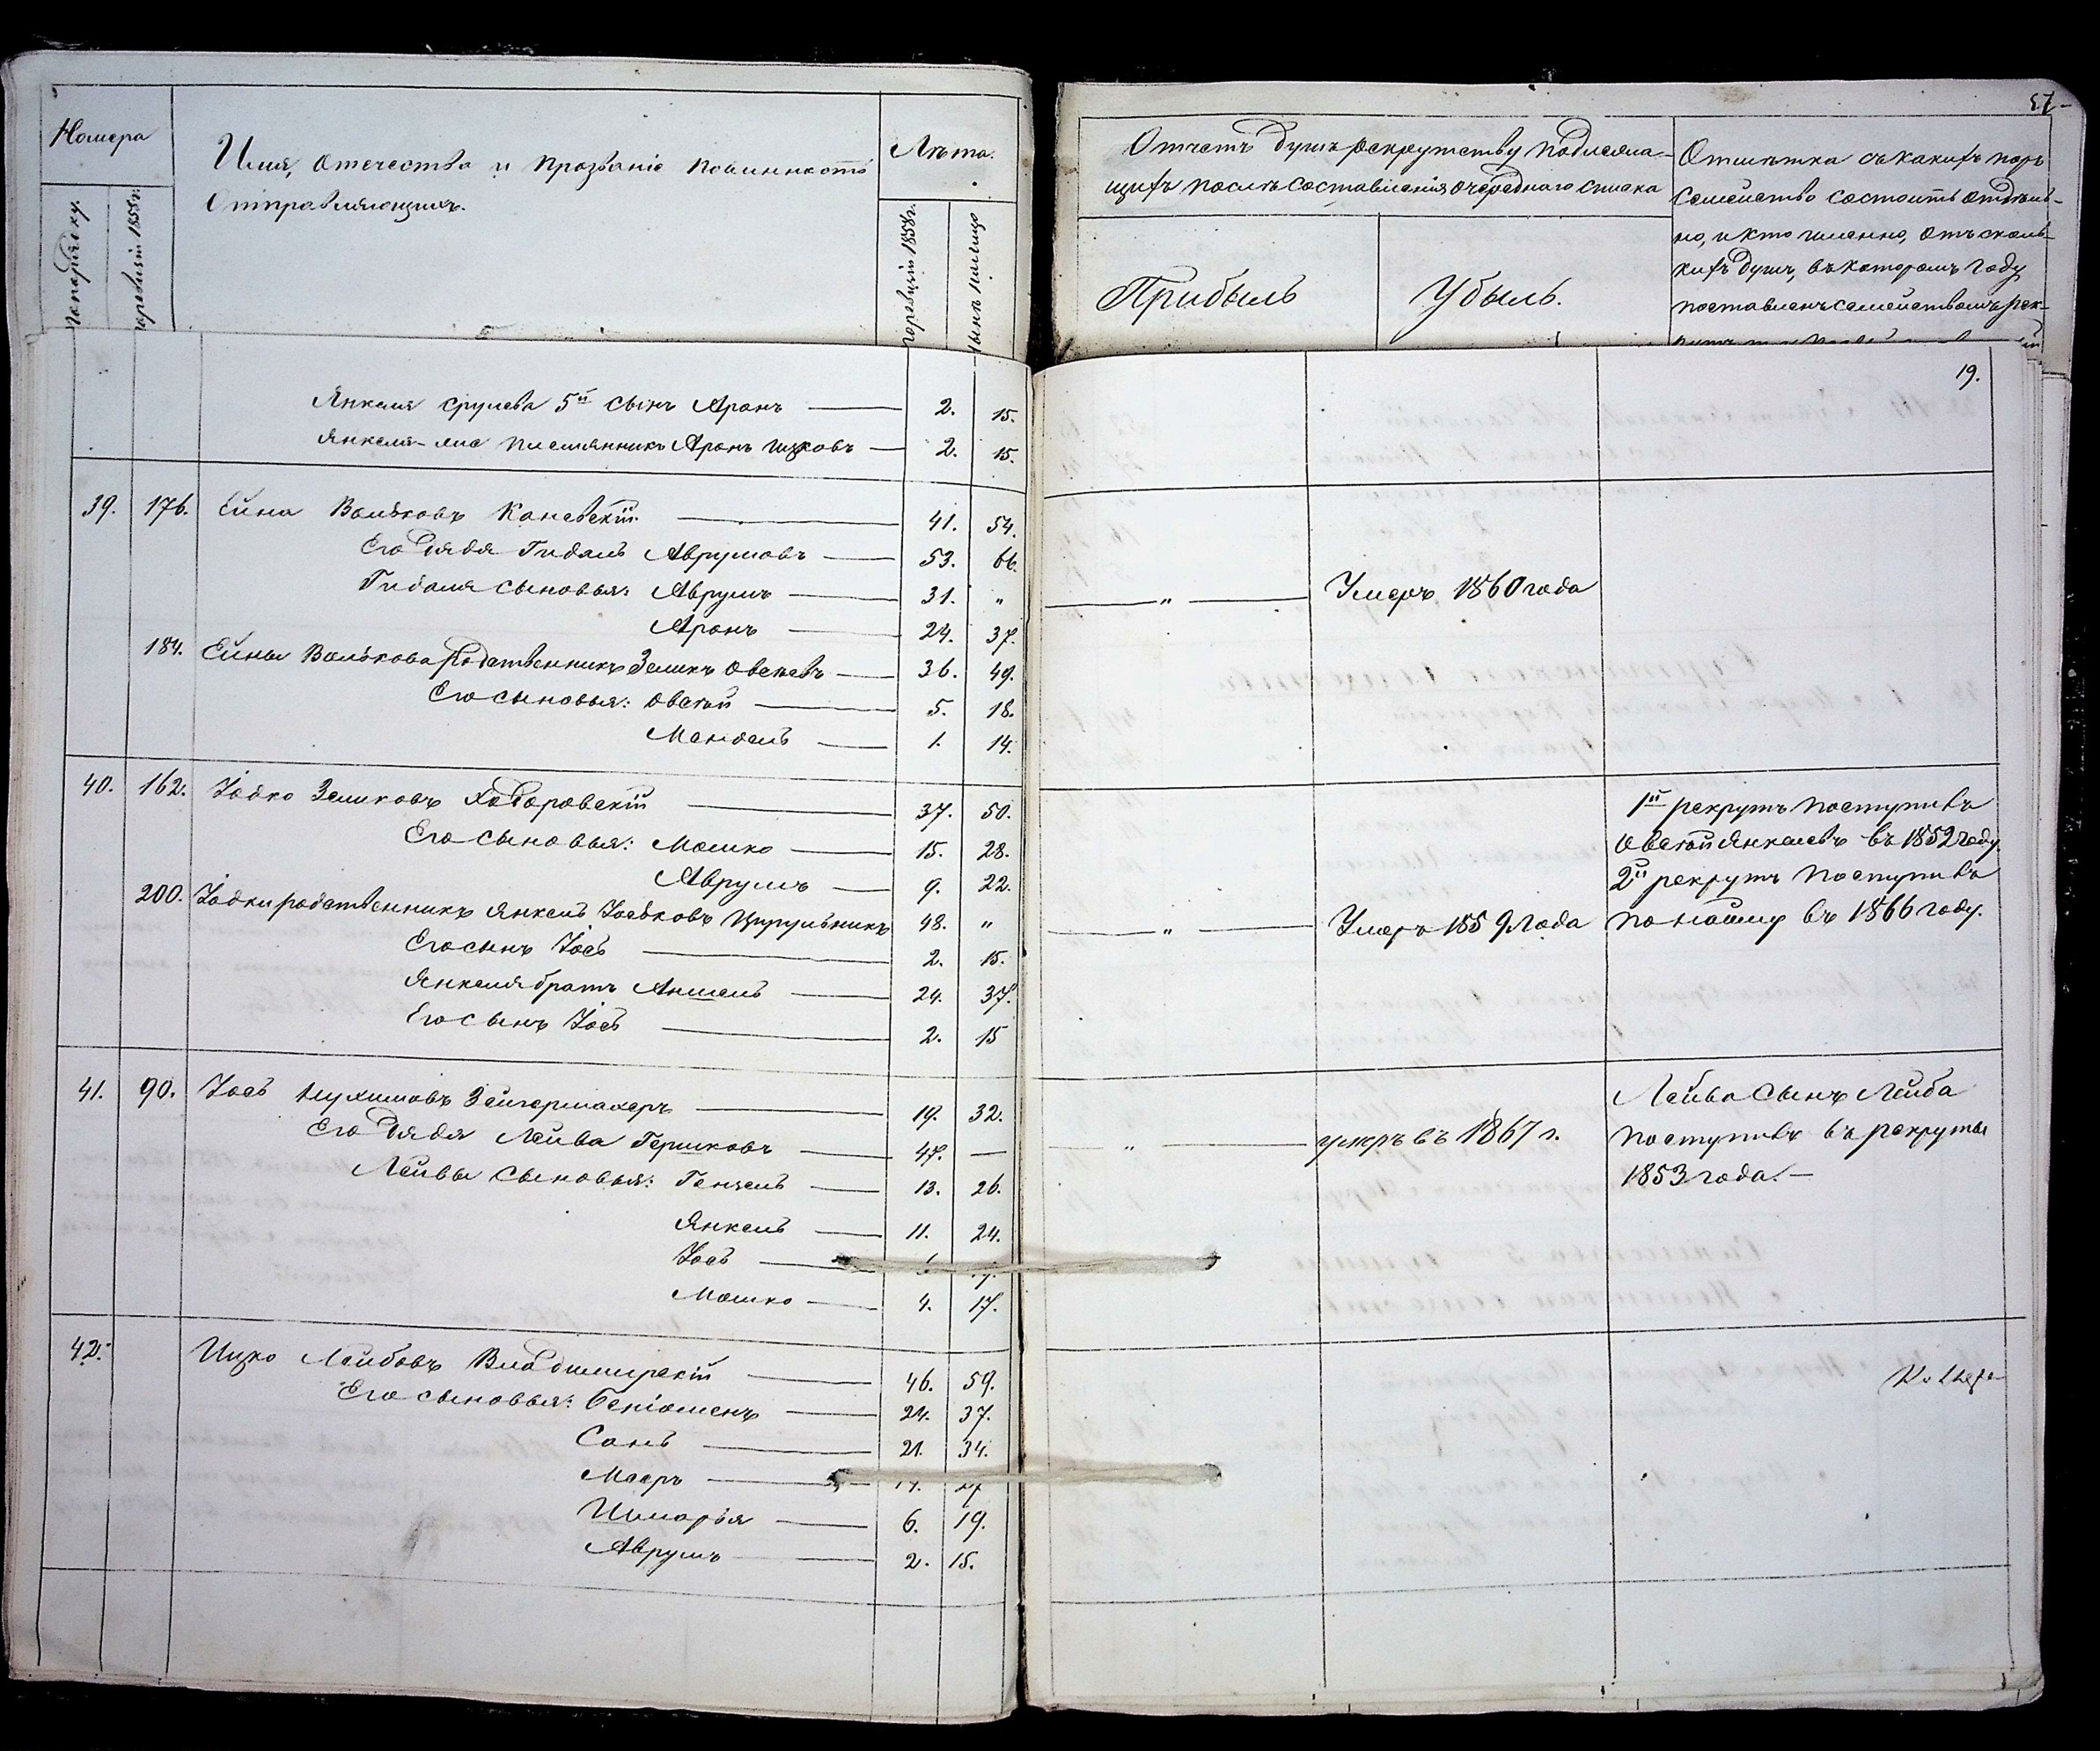 57
Номера
Имя, отечества и прозваніе повинность
Отправляющихъ.
Лѣта.
По порядку.
По ревизіи 1858 г.
По ревизіи 1858 г.
Нынѣ на лицо
Отчетъ душъ рекрутству подлежа-
щихъ послѣ составленія очереднаго списка
Прибыль
Убыль.
Отмѣтка съ какихъ поръ
семейство состоитъ отдѣль-
но, и кто именно, отъ сколь-
кихъ душъ, въ которомъ году
поставленъ семействомъ рек-
19.
Янкеля Срулева 5й сынъ Аронъ — 2. 15.
Янкеля племянникъ Аронъ Ицковъ — 2. 15.
39. 176. Ейна Вольковъ Каневскій — 41. 54.
Его дядя Гидаль Аврумовъ — 53. 66.
Гидаля сыновья: Аврумъ — 31. „ — „ — Умеръ 1860 года
Аронъ — 24. 37.
184. Ейны Волькова родственникъ Зеликъ Овсеевъ — 36. 49.
Его сыновья: Овсѣй — 5. 18.
Мендель — 1. 14.
40. 162. Іодко Зеликовъ Ходоровскій — 37. 50.
Его сыновья: Мошко — 15. 28.
Аврумъ — 9. 22.
200. Іодки родственникъ Янкель Іоськовъ Цирульникъ 48. „ — „ — Умеръ 1859 года
Его сынъ Іось — 2. 15.
Янкеля братъ Аншель — 24. 37.
Его сынъ Іось — 2. 15
1й рекрутъ поступилъ
Овсѣй Янкелевъ въ 1852 году.
2й рекрутъ поступилъ
по найму въ 1866 году.
41. 90. Іось Нухимовъ Зейгермахеръ — 19. 32.
Его дядя Лейба Гершковъ — 47. — „ — умеръ въ 1867 г.
Лейбы сыновья: Гензель — 13. 26.
Янкель — 11. 24.
Іось —
Мошко — 4. 17.
Лейба сынъ Лейба
поступилъ въ рекруты
1853 года. —
42. Ицко Лейбовъ Владимирскій — 46. 59.
Его сыновья: Беніоменъ — 24. 37.
Сань — 21. 34.
Маеръ — 14. 27
Шмарья — 6. 19.
Аврумъ — 2. 15.